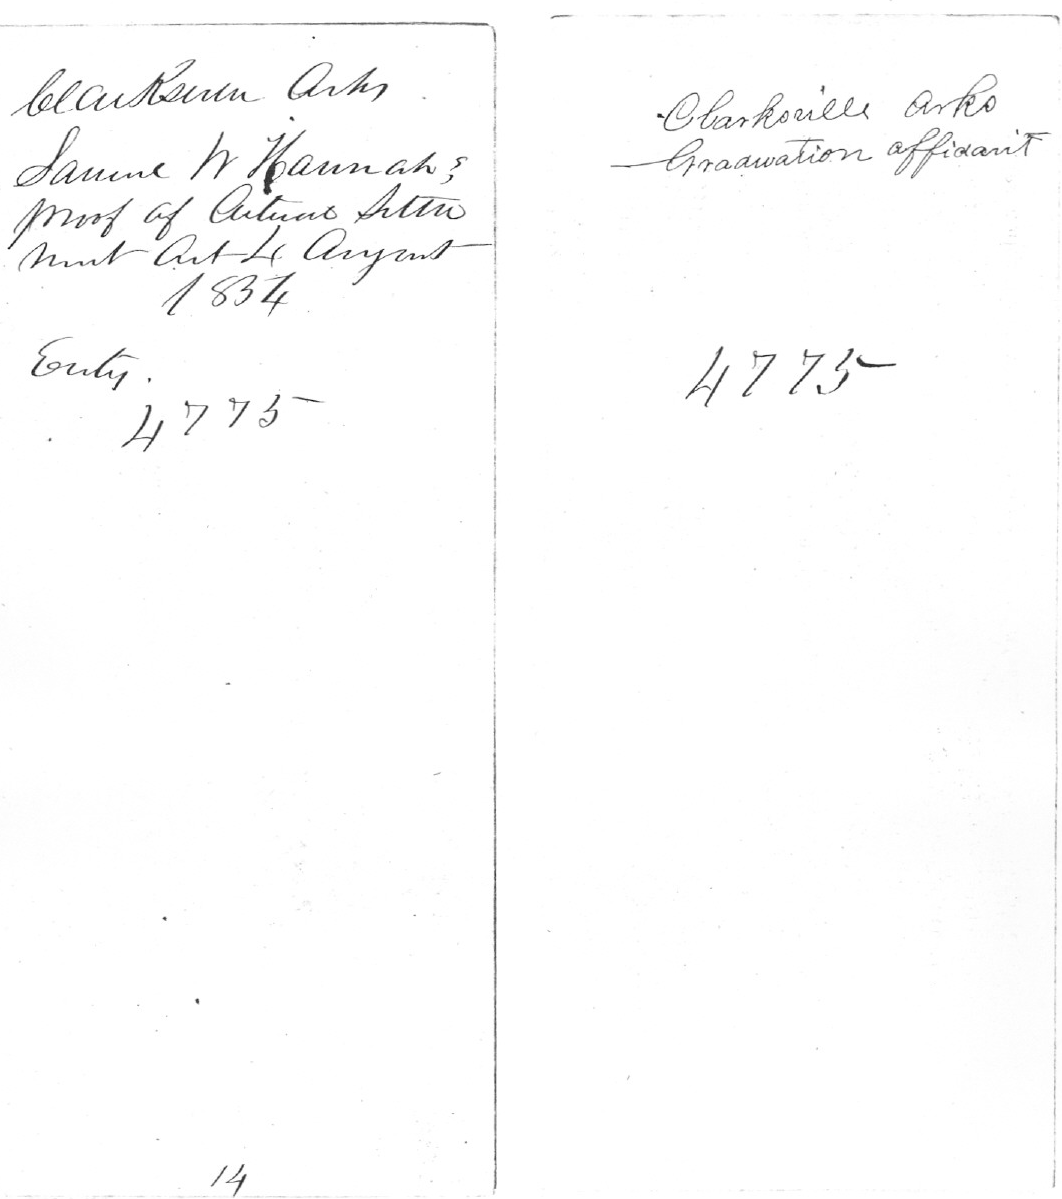 Clarksville Arks
Samuel W Hannah's
proof of Actual Settle
ment Act 4 August
1854
Entry.
4775
14
Clarksville Arks
Graduation affidavit
4775